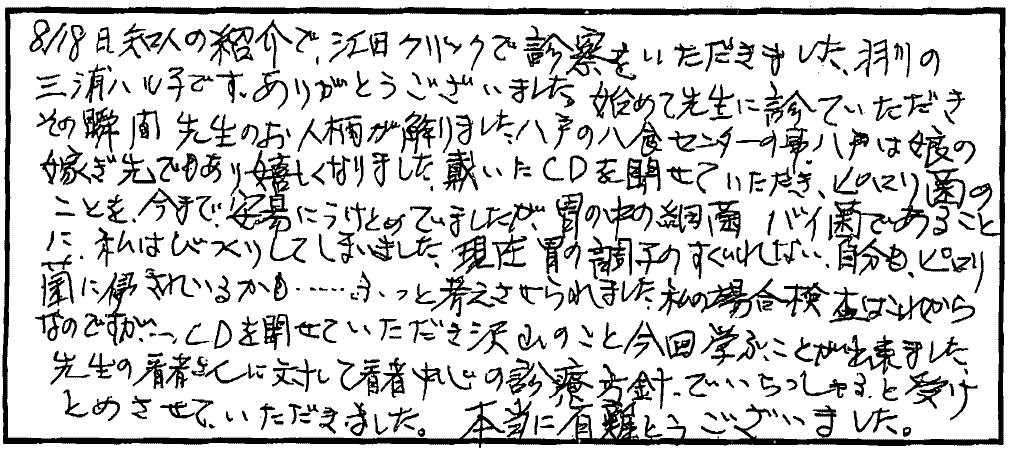 8/18日知人の紹介で、江田クリックで診察をいただきました、羽川の
三浦ハル子です。ありがとうございました。始めて先生に診ていただき
その瞬間 先生のお人柄が解りました、八戸の八食センターの事、八戸は娘の
嫁ぎ先でもあり嬉しくなりました、戴いたCDを聞せていただき、ピロリ菌の
ことを、今まで、安易にうけとめていましたが、胃の中の細菌 バイ菌であること
に、私はびっくりしてしまいました、現在 胃の調子のすぐれない、自分も、ピロリ
菌に侵されているかも……ふっと考えさせられました、私の場合検査はこれから
なのですが、CDを聞せていただき沢山のこと今回学ぶことが出来ました、
先生の看者さんに対して看者中心の診療方針、でいらっしゃると受け
とめさせて、いただきました。 本当に有難とうございました。